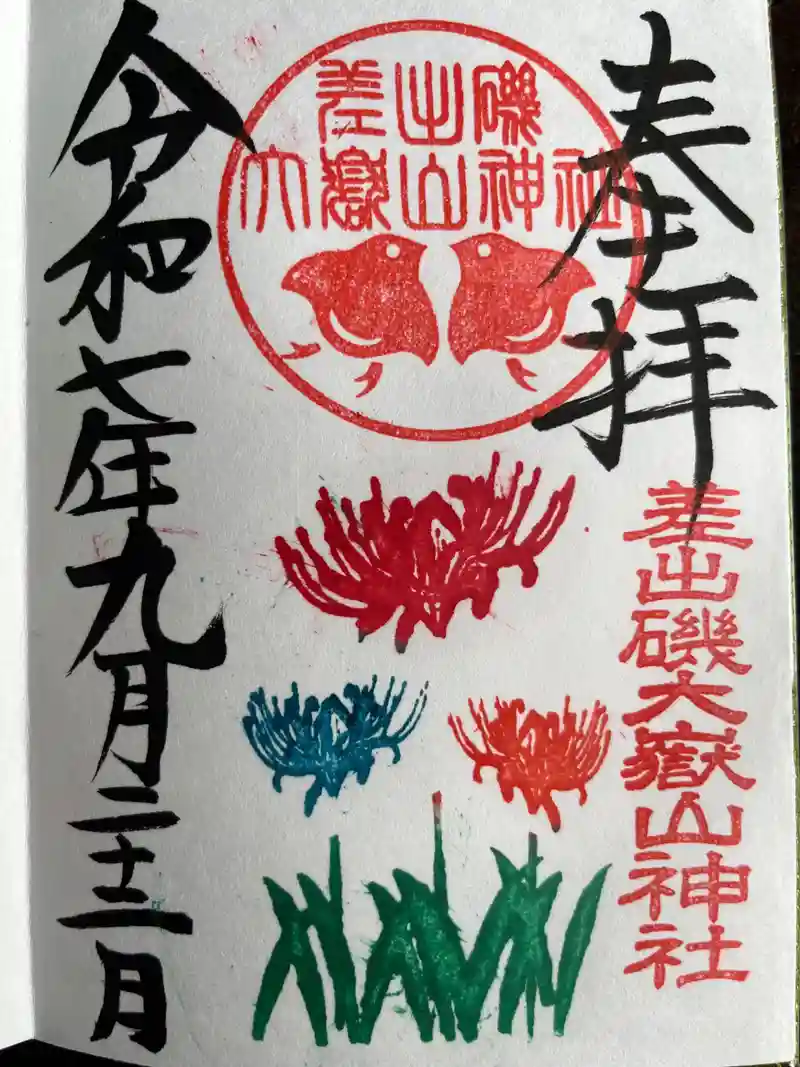 奉拝
差出磯
大嶽山神社
差出磯大嶽山神社
令和七年九月二十二日